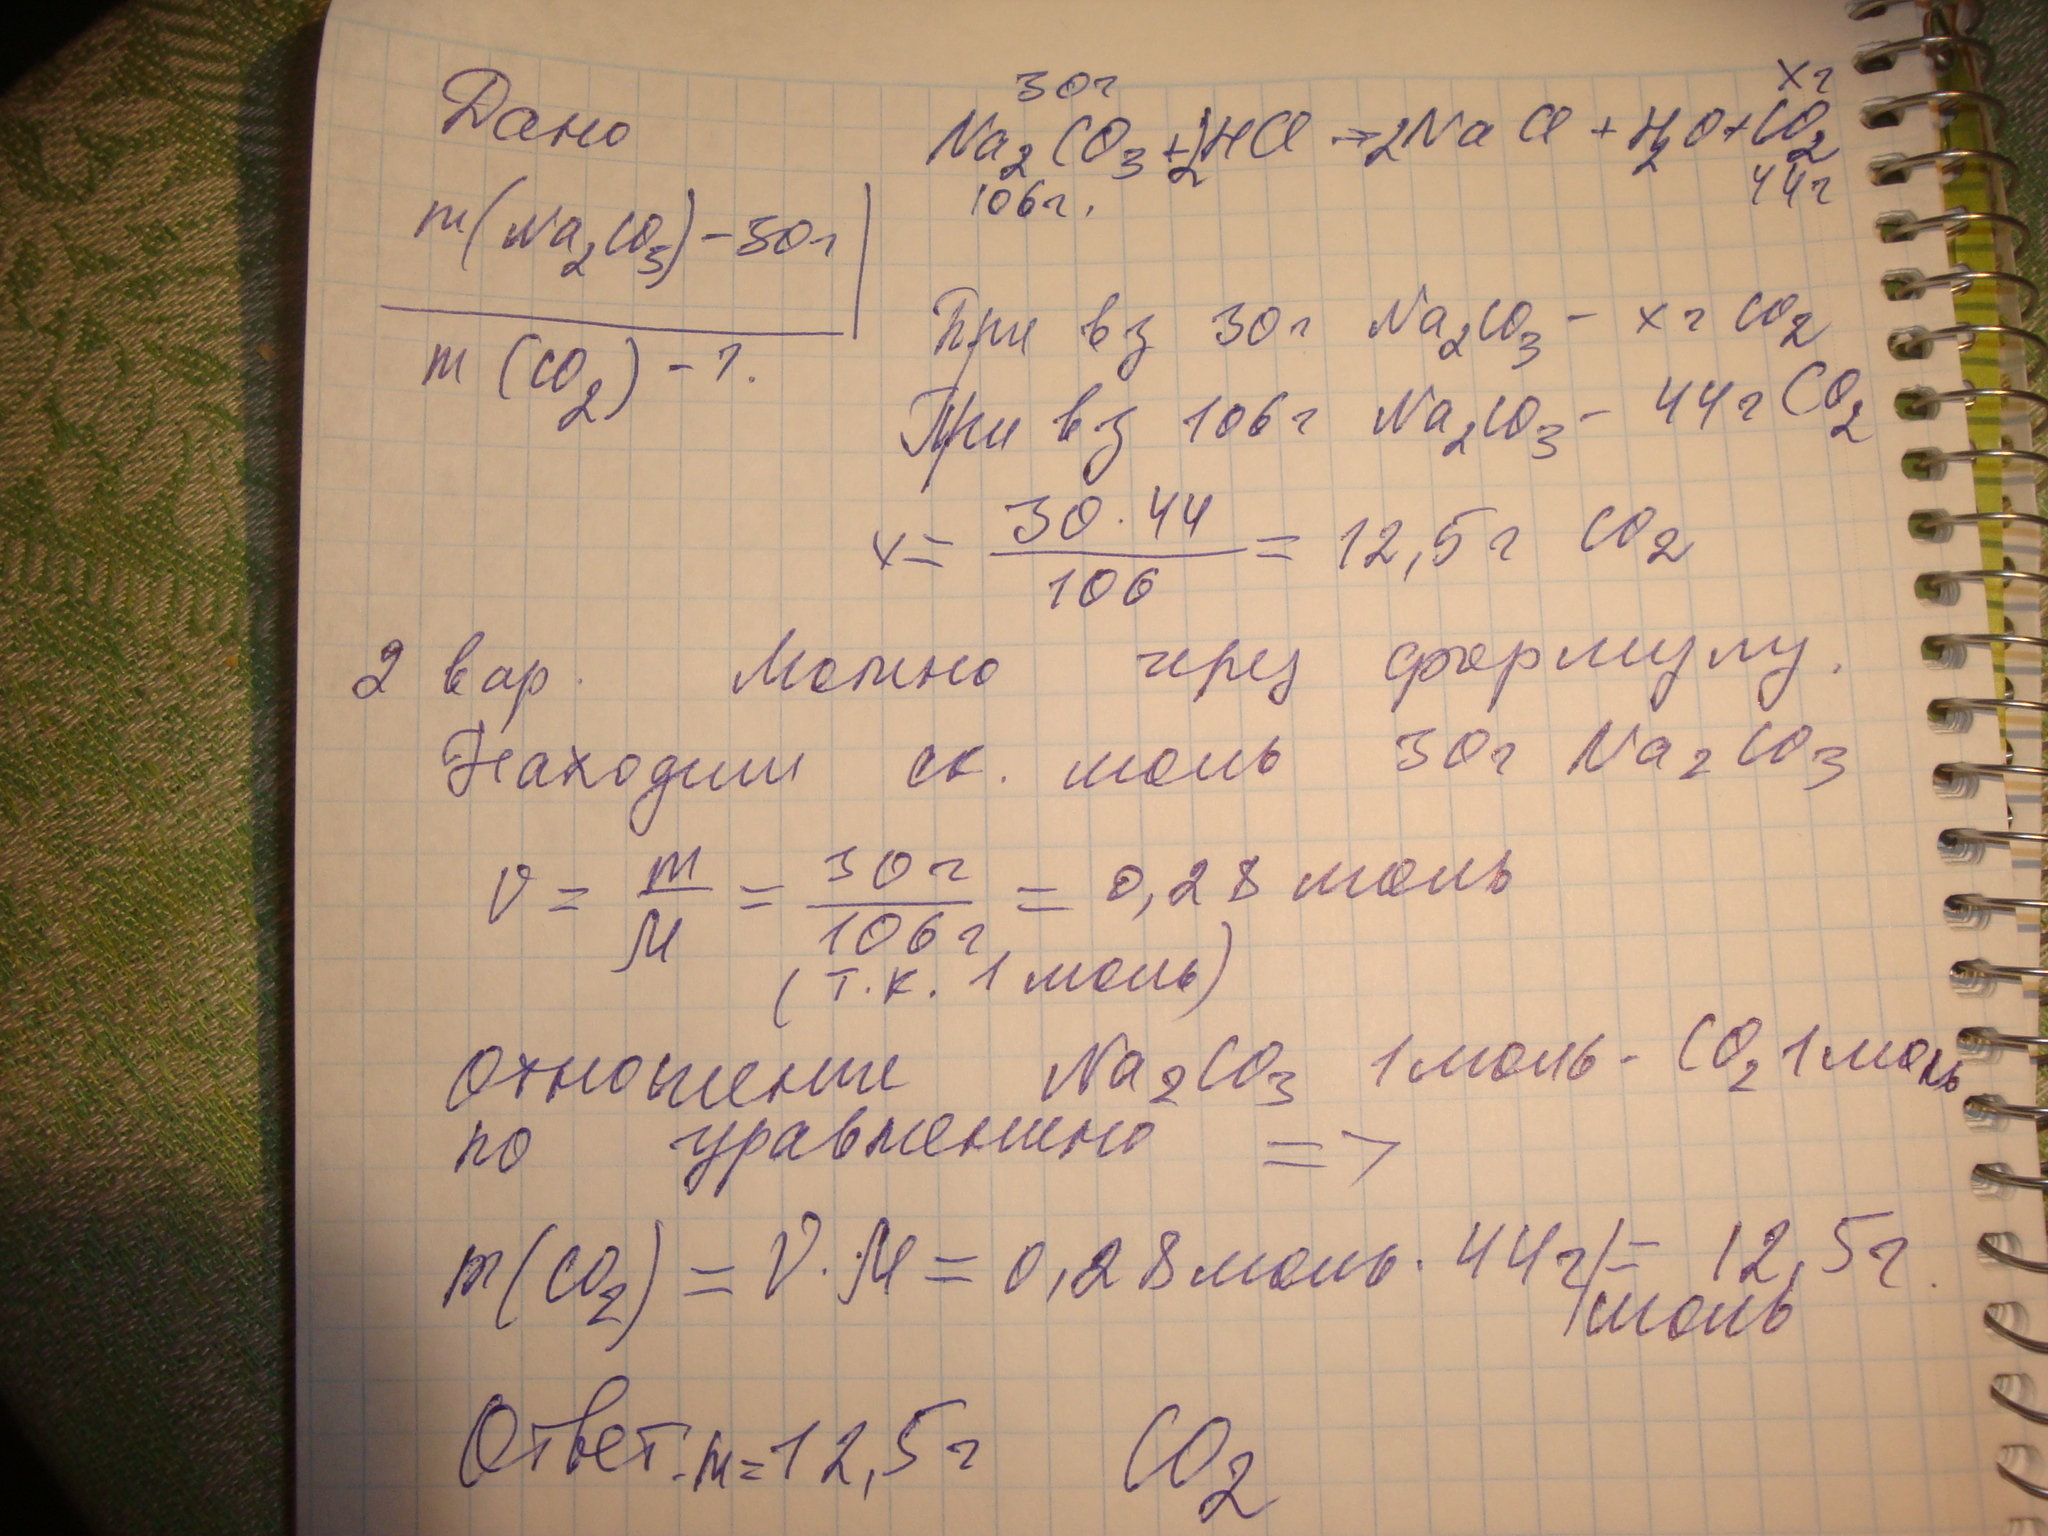 Дано
30г xг
Na2CO3 + 2HCl → 2NaCl + H2O + CO2
106г. 44г
m(Na2CO3) - 30г
m(CO2) - ?.
При вз 30г Na2CO3 - xг CO2
При вз 106г Na2CO3 - 44г CO2
x = 30·44/106 = 12,5г CO2
2 вар. Можно через формулу.
Находим ск. моль 30г Na2CO3
ν = m/M = 30г/106г = 0,28 моль
(т.к. 1 моль)
Отношение Na2CO3 1 моль - CO2 1 моль
по уравнению =>
m(CO2) = ν·M = 0,28 моль · 44г/моль = 12,5г.
Ответ: m=12,5г CO2